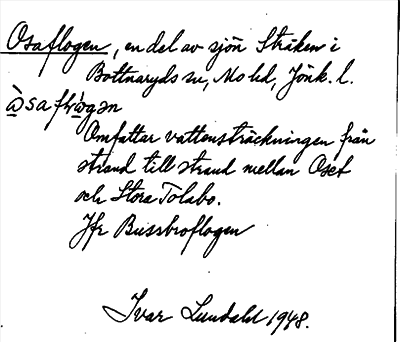 Osaflogen, en del av sjön Stråken i
Bottnaryds sn, Mo hd, Jönk. l.
Omfattar vattensträckningen från
strand till strand mellan Oset
och Stora Tolabo.
Jfr Bussbroflogen
Ivar Lundahl 1948.